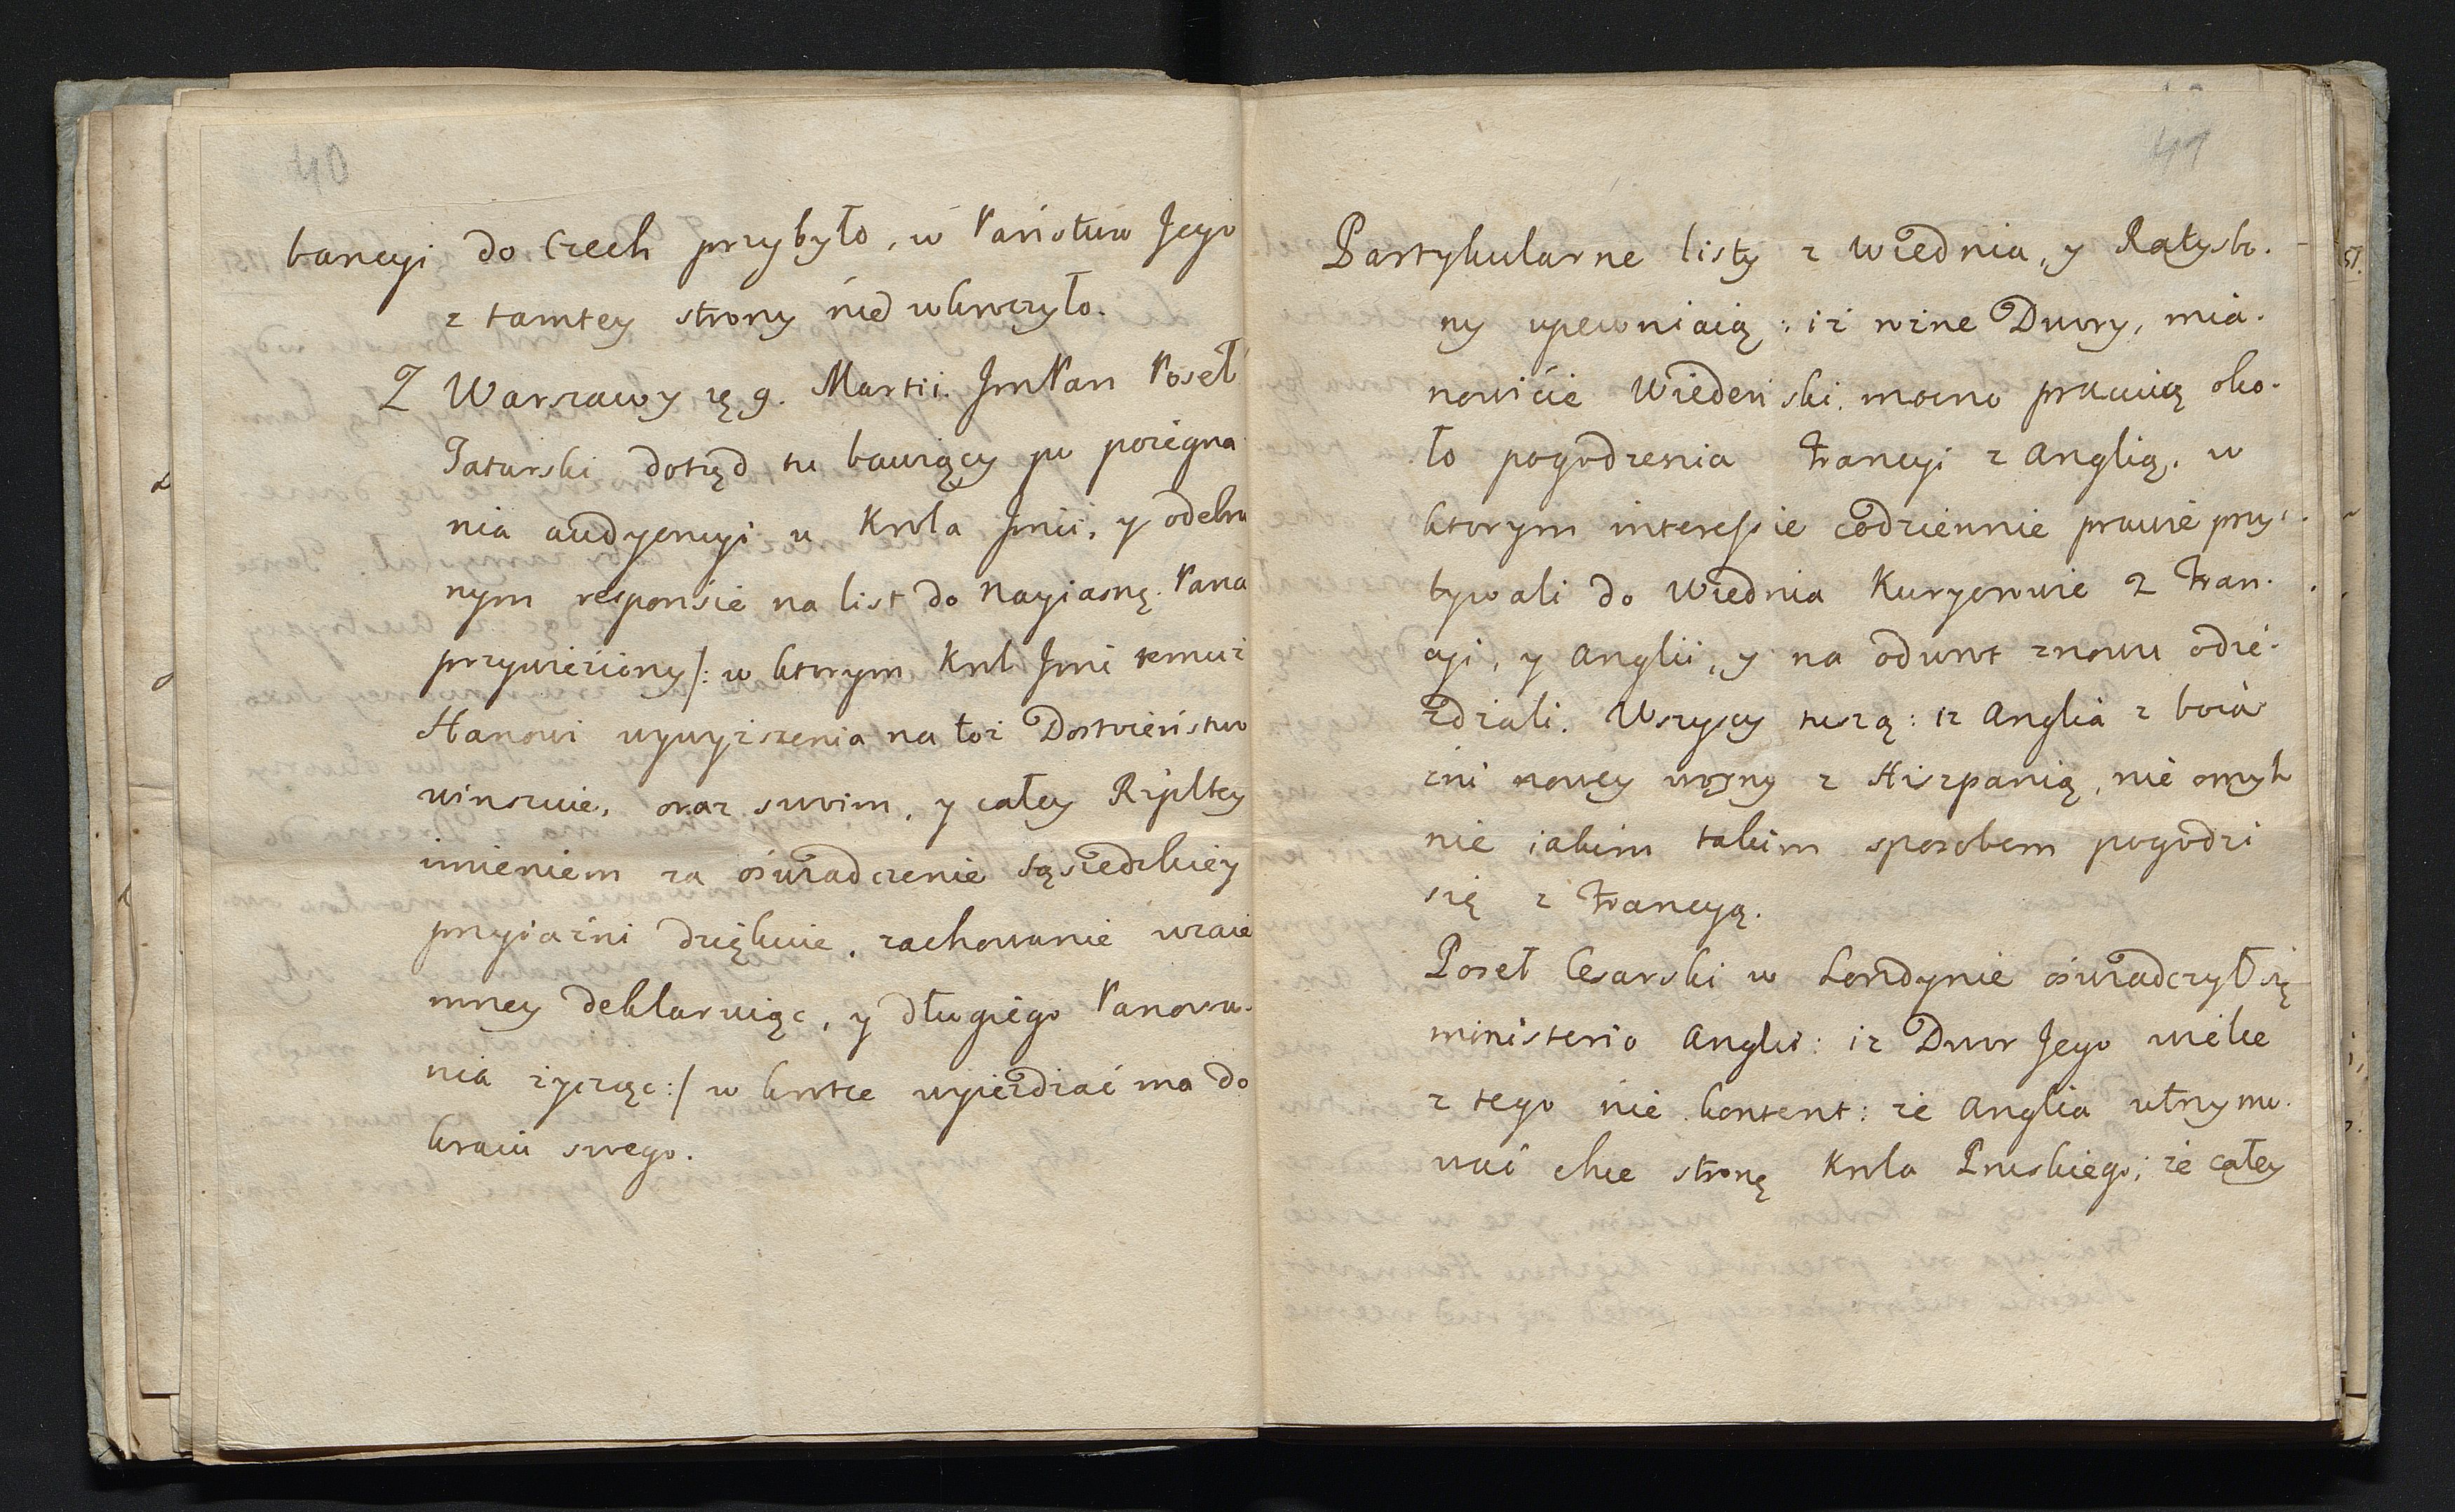 40
bancyi do Czech przybyło, w Państwa Jego
z tamtey strony nie wkroczyło.
Z Warszawy 29. Martii. JmPan Poseł
Tatarski dotąd tu bawiący po pożegna
nia audyencyi u Krola Jmci, y odebra
nym responsie na list do Nayiasnę. Pana
przywieziony /: w ktorym Krol Jmci temuż
Hanowi wywyższenia na toż Dostoieństwo
winszuie, oraz swoim, y całey Rzpltey
imieniem za oświadczenie sąsiedzkiey
przyiaźni dziękuie, zachowanie wzaie
mney deklaruiąc, y długiego Panowa-
nia życząc :/ w krotce wyieżdżać ma do
kraiu swego.
41
Partykularne listy z Wiednia, y Ratysbo-
ny upewniaią: iż rożne Dwory, mia-
nowicie Wiedeński, mocno pracuią oko-
ło pogodzenia Francyi z Anglią, w
ktorym interessie codziennie prawie przy-
bywali do Wiednia Kuryerowie z Fran-
cyi, y Anglii, y na odwrot znowu odie-
żdżali. Wszyscy tuszą: iż Anglia z boia
źni nowey woyny z Hiszpanią, nie omyl
nie iakim takim sposobem pogodzi
się z Francyą.
Poseł Cesarski w Londynie oświadczył się
ministerio Angliæ: iż Dwor Jego wielce
z tego nie kontent: że Anglia utrzymo-
wać chce stronę Krola Pruskiego; że całey